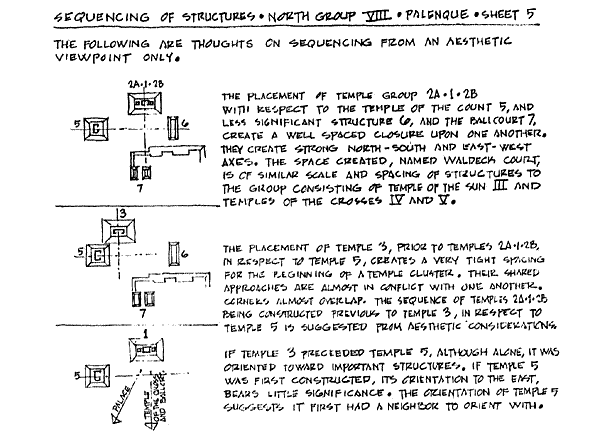 SEQUENCING OF STRUCTURES • NORTH GROUP VIII • PALENQUE • SHEET 5
THE FOLLOWING ARE THOUGHTS ON SEQUENCING FROM AN AESTHETIC
VIEWPOINT ONLY.
2A•1•2B
5
6
7
THE PLACEMENT OF TEMPLE GROUP 2A•1•2B
WITH RESPECT TO THE TEMPLE OF THE COUNT 5, AND
LESS SIGNIFICANT STRUCTURE 6, AND THE BALLCOURT 7,
CREATE A WELL SPACED CLOSURE UPON ONE ANOTHER.
THEY CREATE STRONG NORTH-SOUTH AND EAST-WEST
AXES. THE SPACE CREATED, NAMED WALDECK COURT,
IS OF SIMILAR SCALE AND SPACING OF STRUCTURES TO
THE GROUP CONSISTING OF TEMPLE OF THE SUN III AND
TEMPLES OF THE CROSSES IV AND V.
3
5
6
7
THE PLACEMENT OF TEMPLE 3, PRIOR TO TEMPLES 2A•1•2B,
IN RESPECT TO TEMPLE 5, CREATES A VERY TIGHT SPACING
FOR THE BEGINNING OF A TEMPLE CLUSTER. THEIR SHARED
APPROACHES ARE ALMOST IN CONFLICT WITH ONE ANOTHER.
CORNERS ALMOST OVERLAP. THE SEQUENCE OF TEMPLES 2A•1•2B
BEING CONSTRUCTED PREVIOUS TO TEMPLE 3, IN RESPECT TO
TEMPLE 5 IS SUGGESTED FROM AESTHETIC CONSIDERATIONS
1
5
PALACE
TEMPLE
OF THE CROSS
AND BALLCRT.
IF TEMPLE 3 PRECEDED TEMPLE 5, ALTHOUGH ALONE, IT WAS
ORIENTED TOWARD IMPORTANT STRUCTURES. IF TEMPLE 5
WAS FIRST CONSTRUCTED, ITS ORIENTATION TO THE EAST,
BEARS LITTLE SIGNIFICANCE. THE ORIENTATION OF TEMPLE 5
SUGGESTS IT FIRST HAD A NEIGHBOR TO ORIENT WITH.